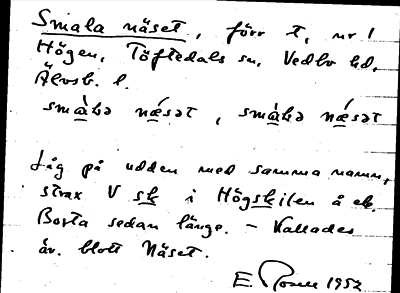 Smala näset, förr t. nr 1
Högen, Töftedals sn, Vedbo hd,
Älvsb. l.
smàbə nǽsət, smàbə nǽsət
Låg på udden med samma namn,
strax V sk i Högskilen å ek.
Borta sedan länge. – Kallades
äv. blott Näset.
E. 1952